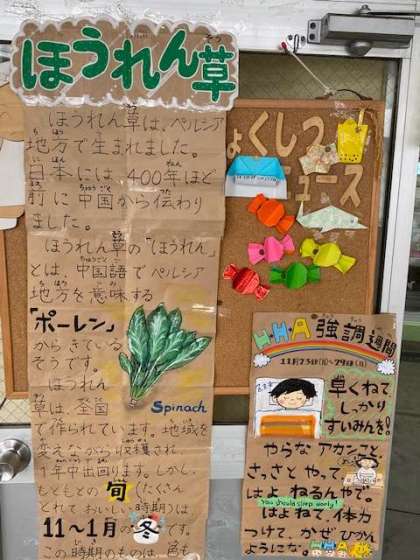 ほうれん草
ほうれん草は、ペルシア
地方で生まれました。
日本には400年ほど
前に中国から伝わり
ました。
ほうれん草の「ほうれん」
とは、中国語でペルシア
地方を意味する
「ポーレン」
からきている
そうです。
ほうれん
草は、全国
で作られています。地域を
変えながら収穫され、
1年中出回ります。しかし、
もともとの旬(たくさん
とれておいしい時期)は
11〜1月の冬です。
この時期のものは、色も
Spinach
ょくしつ
ニュース
HHA強調週間
11月23日(月)〜29日(日)
早くねて
しっかり
すいみんを!
やらなアカンこと
さっさとやって
はよねるんやで。
You should sleep early!
はよねて体力
つけて、かぜひかん
ように